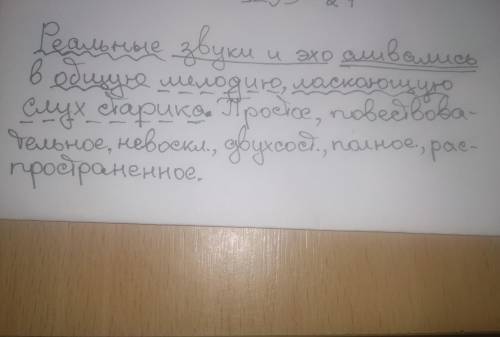 Реальные звуки и эхо сливались
в общую мелодию, ласкающую
слух старика. Простое, повествова-
тельное, невоскл., двухсост., полное, рас-
пространенное.